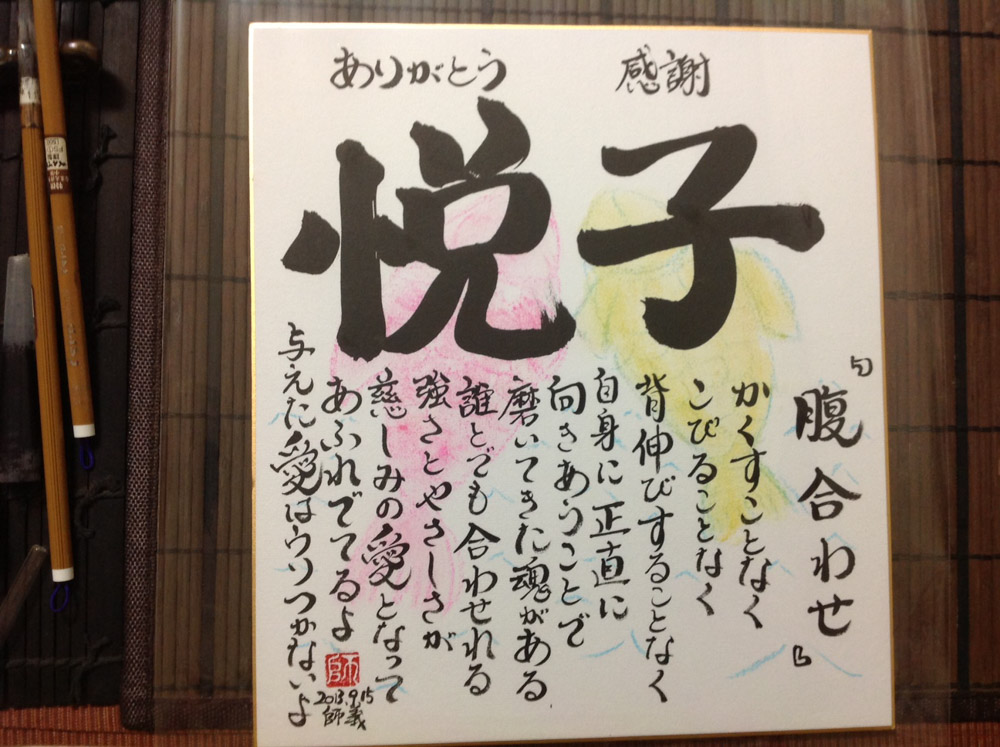 ありがとう
感謝
悦子
「腹合わせ」
かくすことなく
こびることなく
背伸びすることなく
自身に正直に
向きあうことで
磨いてきた魂がある
誰とでも合わせれる
強さとやさしさが
慈しみの愛となって
あふれでてるよ
与えた愛はウソつかないよ
師
2013.9.15
師義